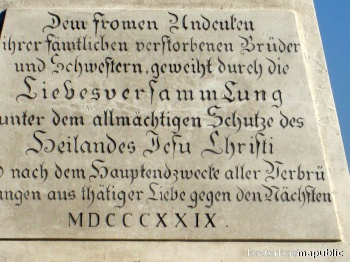 Dem frommen Andenken
ihrer sämtlichen verstorbenen Brüder
und Schwestern, geweiht durch die
Liebesversammlung
unter dem allmächtigen Schutze des
Heilandes Jesu Christi
nach dem Hauptendzwecke aller Verbrü
ungen aus thätiger Liebe gegen den Nächsten
MDCCCXXIX.
mapublic